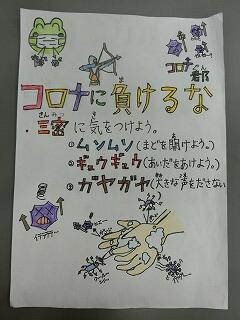 コロナ君
くん
コロナに負けるな
ま
さんみつ
・三密に気をつけよう。
① ムンムン(まどを開けよう。)
② ギュウギュウ(あいだをあけよう。)
③ ガヤガヤ(大きな声をださない